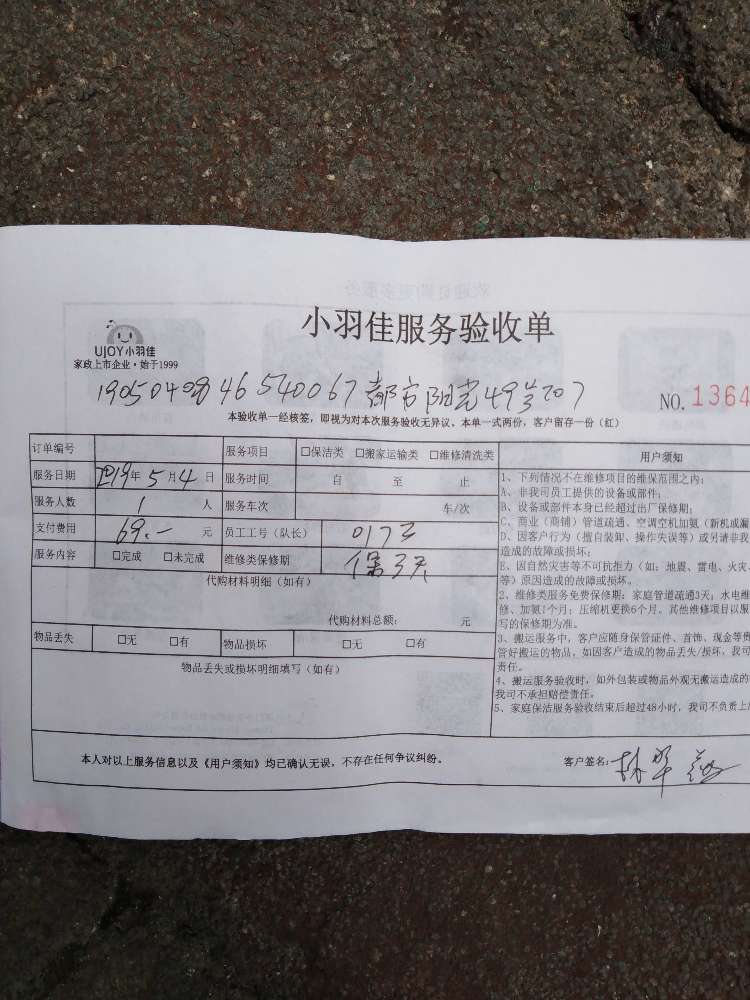 小羽佳服务验收单
UJOY小羽佳
家政上市企业·始于1999
1905040846540067都市阳光49号707
NO. 1364
本验收单一经核签，即视为对本次服务验收无异议。本单一式两份，客户留存一份（红）
订单编号 服务项目 □保洁类 □搬家运输类 □维修清洗类
服务日期 2019年5月4日 服务时间 自 至 止
服务人数 1 人 服务车次 车/次
支付费用 69.— 元 员工工号（队长） 0173
服务内容 □完成 □未完成 维修类保修期 保3天
代购材料明细（如有）
代购材料总额： 元
物品丢失 □无 □有 物品损坏 □无 □有
物品丢失或损坏明细填写（如有）
用户须知
1、下列情况不在维修项目的维保范围之内：
A、非我司员工提供的设备或部件；
B、设备或部件本身已经超过出厂保修期；
C、商业（商铺）管道疏通、空调空机加氨（新机或漏
D、因客户行为（擅自装卸、操作失误等）或另请非我
造成的故障或损坏；
E、因自然灾害等不可抗拒力（如：地震、雷电、火灾、
等）原因造成的故障或损坏。
2、维修类服务免费保修期：家庭管道疏通3天；水电维
修、加氨1个月；压缩机更换6个月。其他维修项目以服
写的保修期为准。
3、搬运服务中，客户应随身保管证件、首饰、现金等贵
管好搬运的物品，如因客户造成的物品丢失/损坏，我司
责任。
4、搬运服务验收时，如外包装或物品外观无搬运造成的
我司不承担赔偿责任。
5、家庭保洁服务验收结束后超过48小时，我司不负责上
本人对以上服务信息以及《用户须知》均已确认无误，不存在任何争议纠纷。
客户签名：林翠